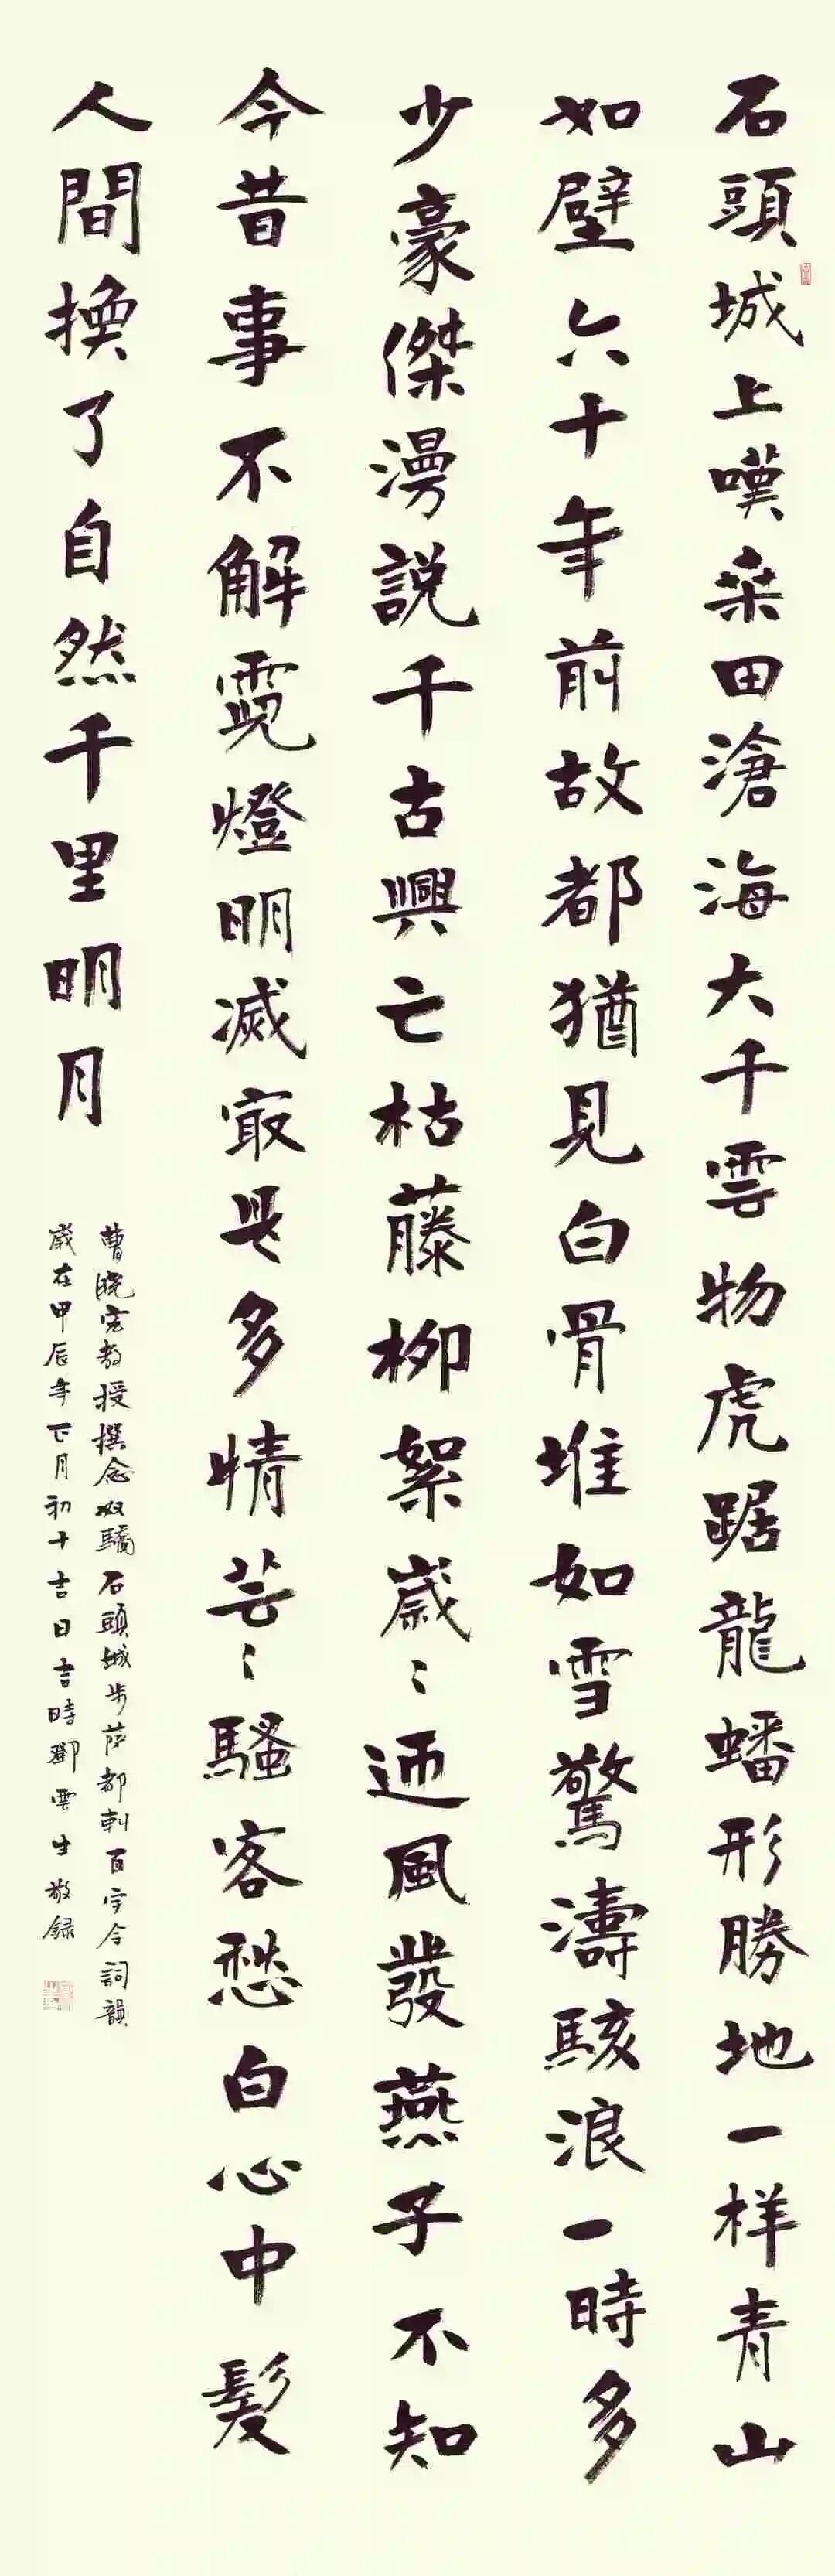 石頭城上嘆桒田滄海大千雲物虎踞龍蟠形勝地一样青山
如壁六十年前故都猶見白骨堆如雪驚濤駭浪一時多
少豪傑漫説千古興亡枯藤柳絮歲〻迊風發燕子不知
今昔事不解霓燈明滅㝡是多情芸〻騷客愁白心中髮
人間換了自然千里明月
曹晓宏教授撰念奴驕石頭城步薩都剌百字令詞韻
歲在甲辰年正月初十吉日吉時鄧雲生敬録